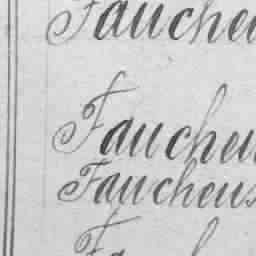 Faucheu
Faucheus
Faucheus
Fa